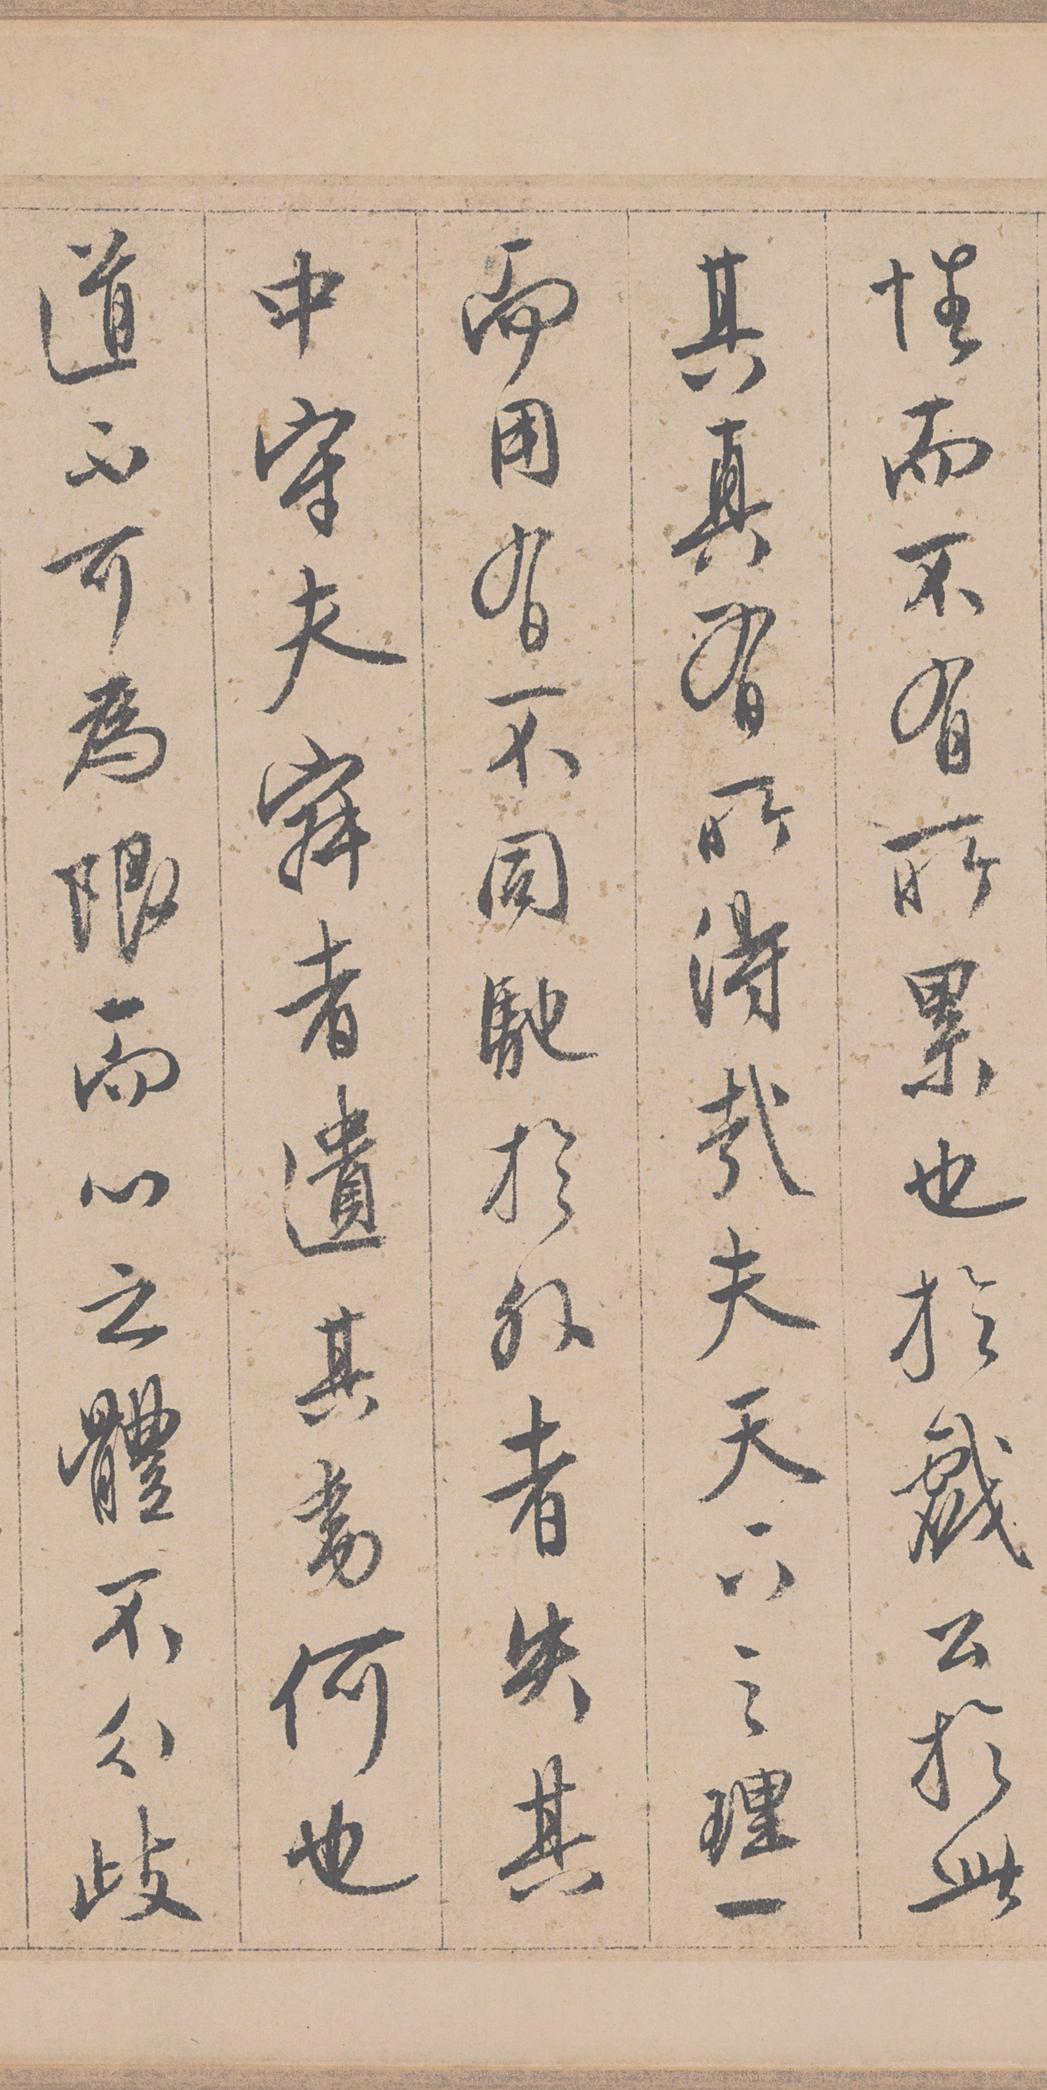 性而不有所累也於戲公於此
其真有所得哉夫天下之理一
而用有不同馳於外者失其
中守夫寂者遺其為何也
道不可為限而心之體不分歧